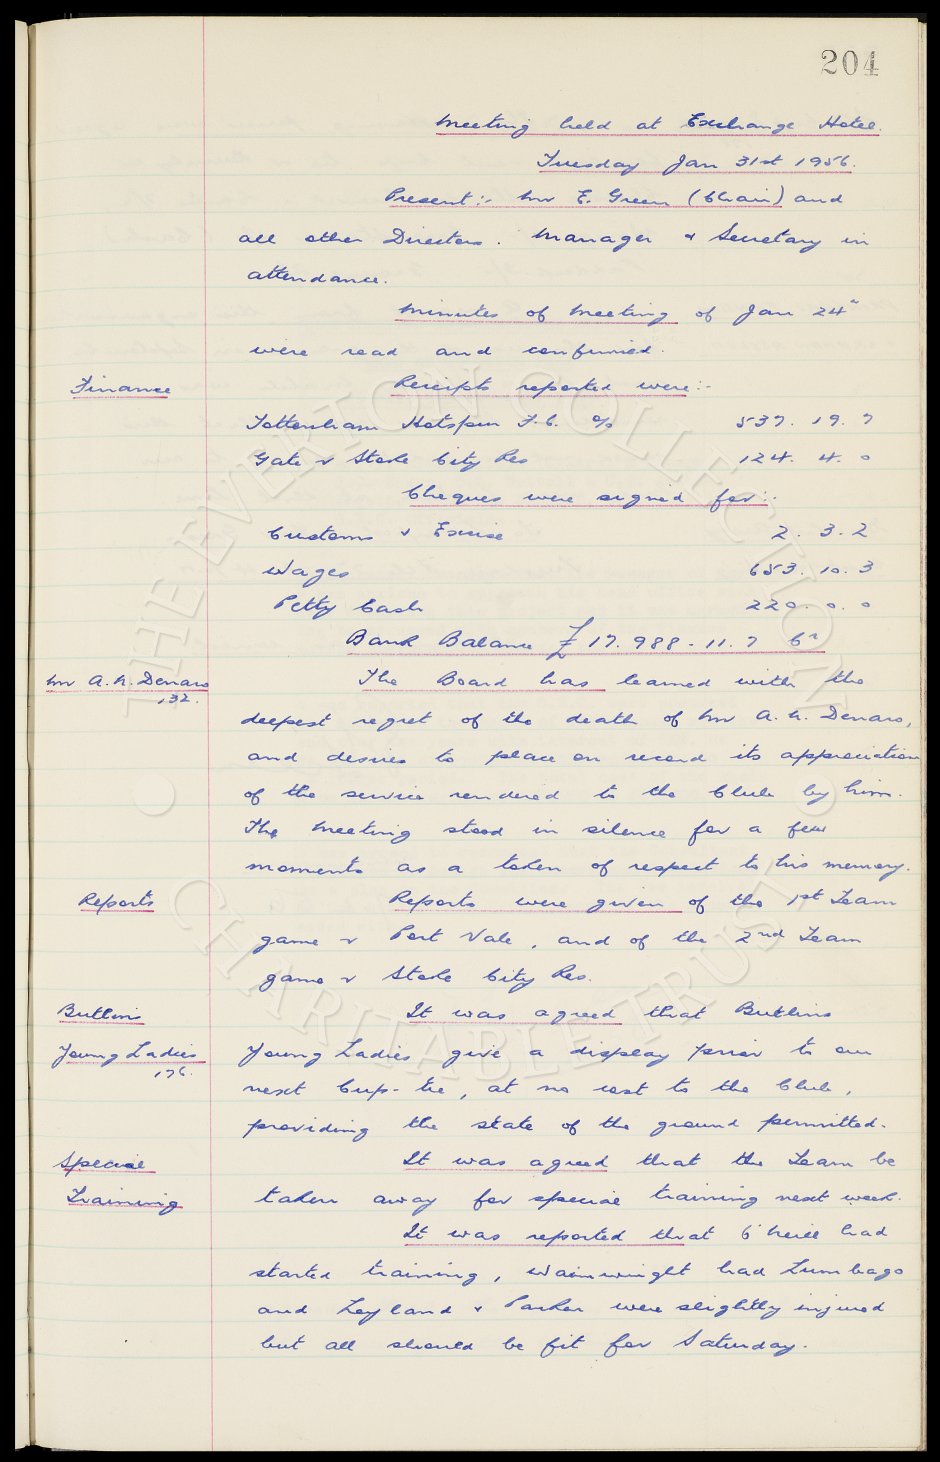 204
Meeting held at Exchange Hotel.
Tuesday Jan 31st 1956.
Present :- Mr E. Green (Chair) and
all other Directors. Manager & Secretary in
attendance.
Minutes of Meeting of Jan 24"
were read and confirmed.
Finance
Receipts reported were :-
Tottenham Hotspur F.C. %
537. 19. 7
Gate v Stoke City Res
124. 4. 0
Cheques were signed for :-
Customs & Excise
2. 3. 2
Wages
653. 10. 3
Petty Cash
220. 0. 0
Bank Balance £17.988.11.7 Cr
Mr A. N. Denaro
132.
The Board has learned with the
deepest regret of the death of Mr A. N. Denaro,
and desires to place on record its appreciation
of the service rendered to the Club by him.
The Meeting stood in silence for a few
moments as a token of respect to his memory.
Reports
Reports were given of the 1st Team
game v Port Vale, and of the 2nd Team
game v Stoke City Res.
Butlins
Young Ladies
176.
It was agreed that Butlins
Young Ladies give a display prior to our
next Cup-tie, at no cost to the Club,
providing the state of the ground permitted.
Special
Training
It was agreed that the Team be
taken away for special training next week.
It was reported that O'Neill had
started training, Wainwright had Lumbago
and Leyland & Parker were slightly injured
but all should be fit for Saturday.
THE EVERTON COLLECTION
CHARITABLE TRUST